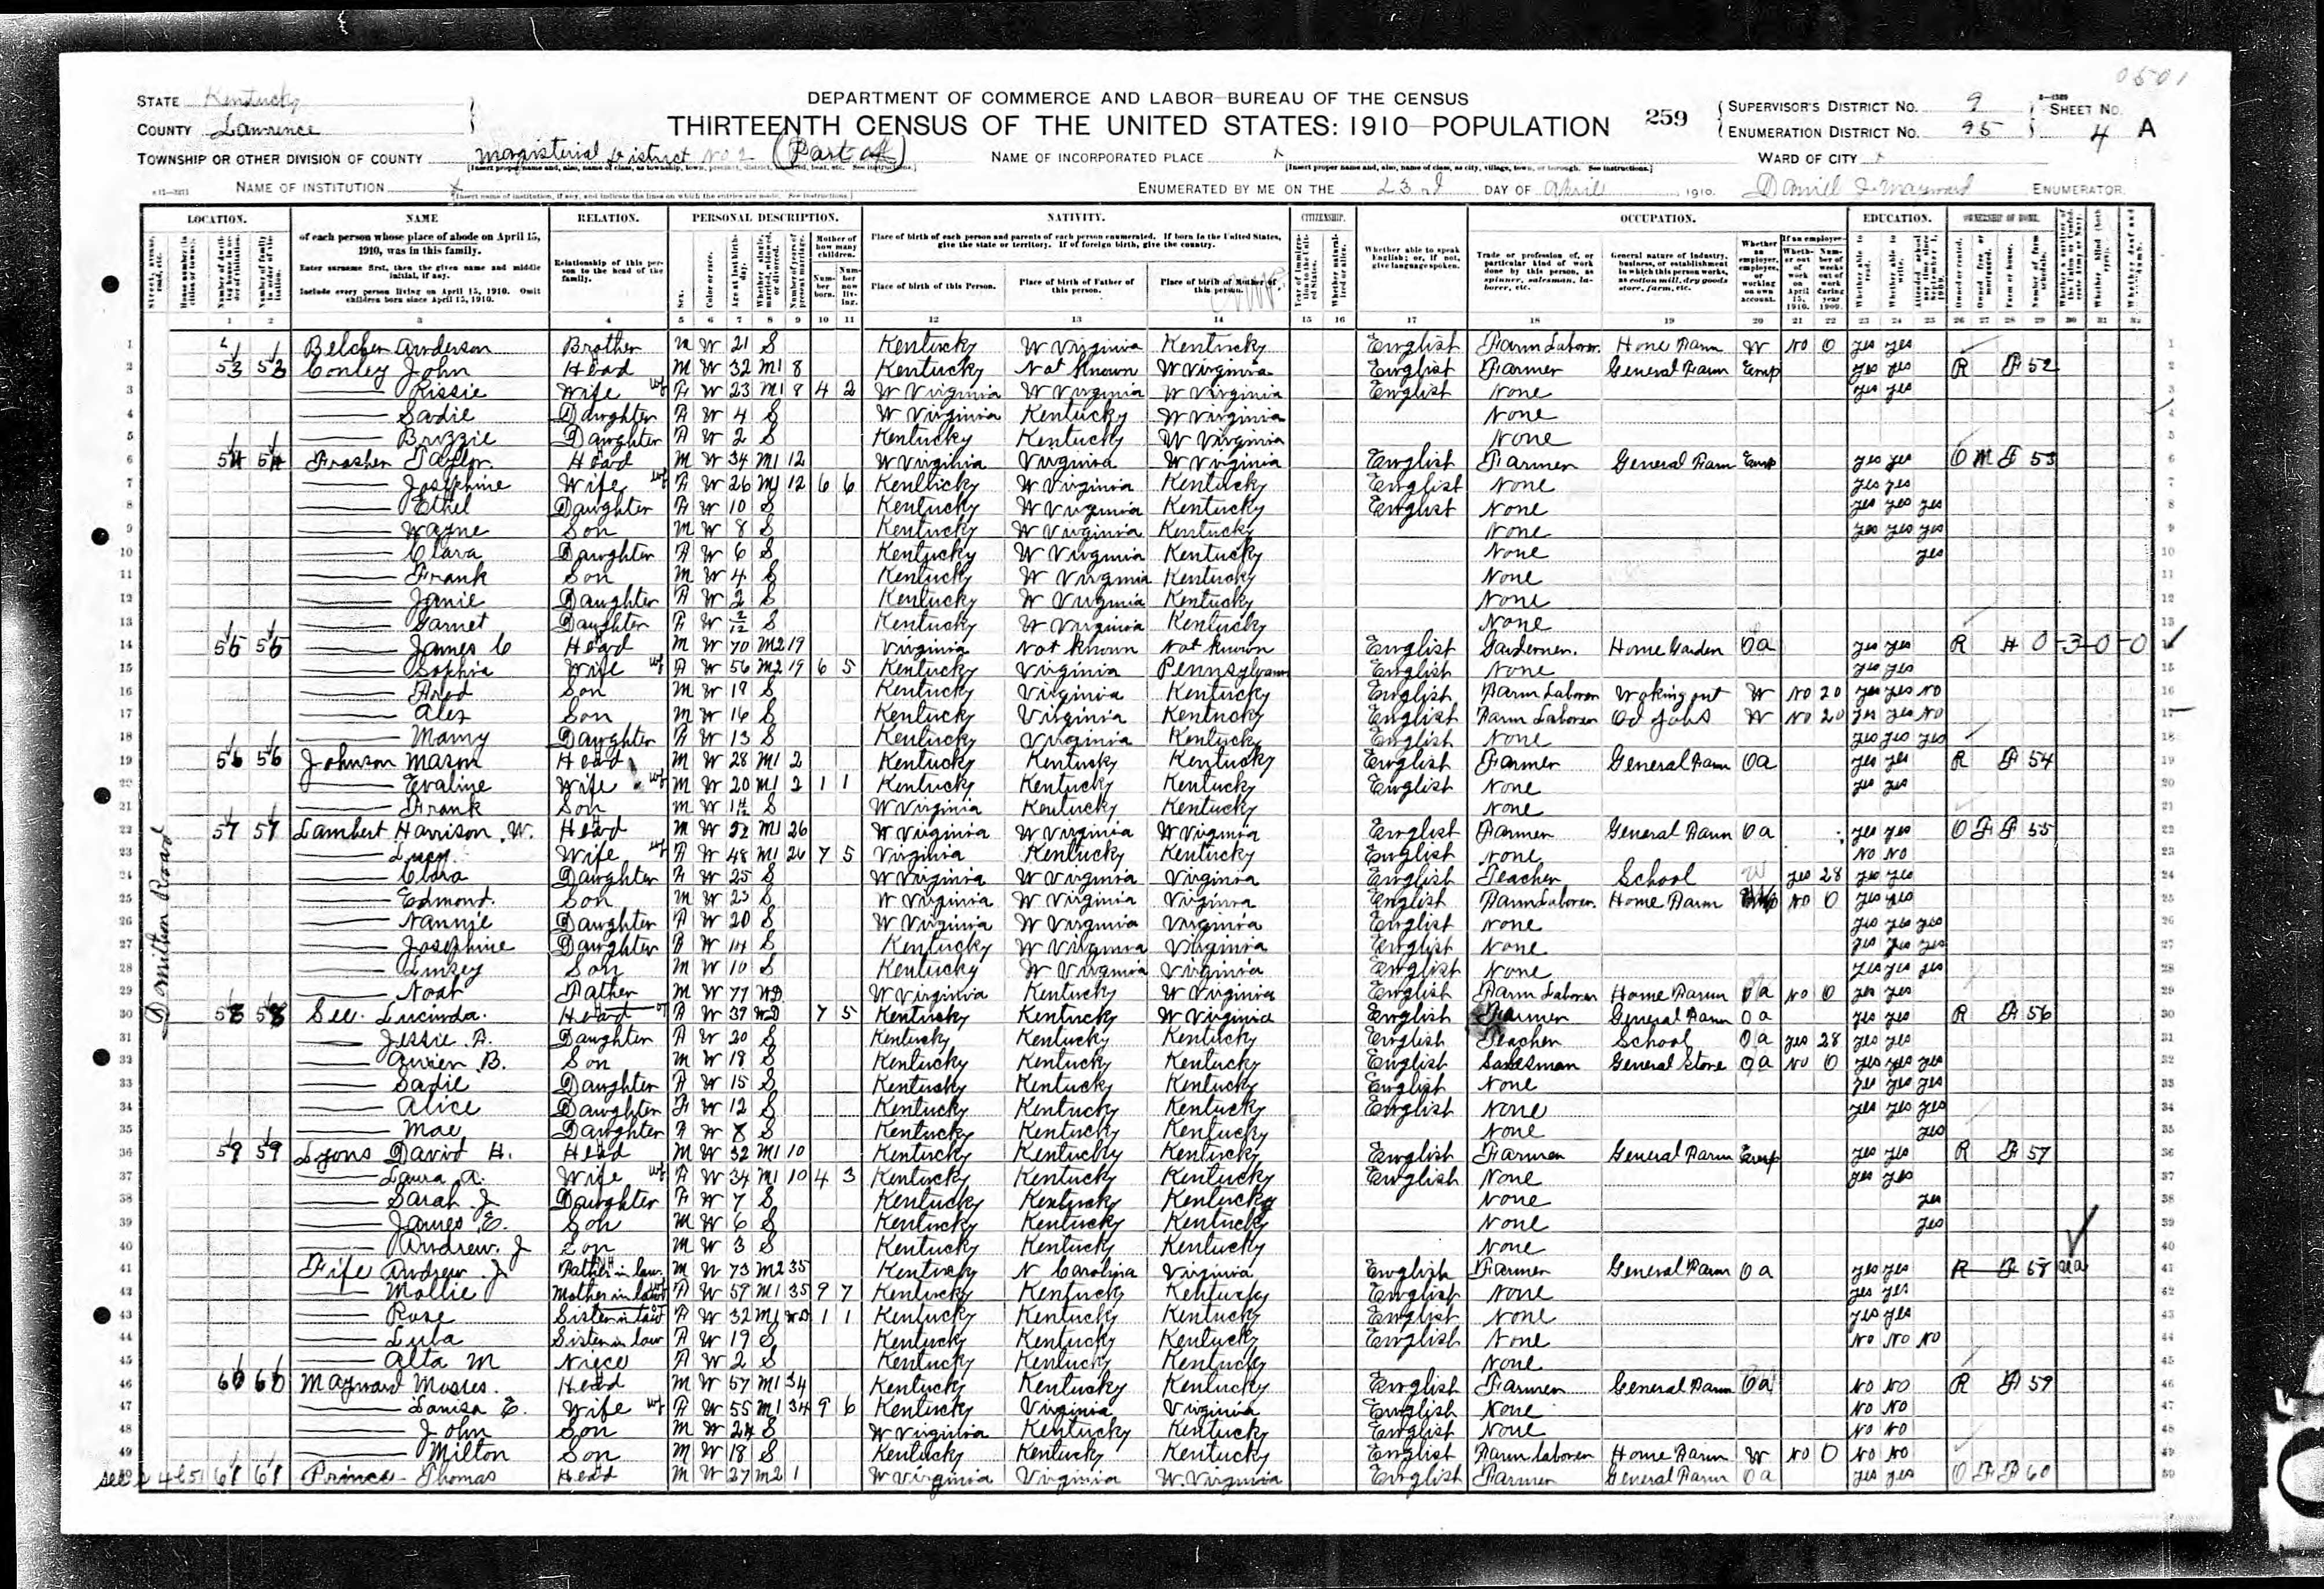 0501
STATE Kentucky
COUNTY Lawrence
TOWNSHIP OR OTHER DIVISION OF COUNTY Magisterial District No 2 (Part of)
NAME OF INSTITUTION X
DEPARTMENT OF COMMERCE AND LABOR—BUREAU OF THE CENSUS
THIRTEENTH CENSUS OF THE UNITED STATES: 1910—POPULATION
259
SUPERVISOR'S DISTRICT No. 9
ENUMERATION DISTRICT No. 95
SHEET No. 4 A
NAME OF INCORPORATED PLACE X
WARD OF CITY X
ENUMERATED BY ME ON THE 23rd DAY OF April, 1910. Daniel J Maynard ENUMERATOR.
LOCATION. NAME RELATION. PERSONAL DESCRIPTION. NATIVITY. CITIZENSHIP. OCCUPATION. EDUCATION. OWNERSHIP OF HOME.
of each person whose place of abode on April 15, 1910, was in this family.
Enter surname first, then the given name and middle initial, if any.
Include every person living on April 15, 1910. Omit children born since April 15, 1910.
Relationship of this person to the head of the family.
Place of birth of each person and parents of each person enumerated. If born in the United States, give the state or territory. If of foreign birth, give the country.
Place of birth of this Person. Place of birth of Father of this person. Place of birth of Mother of this person.
Whether able to speak English; or, if not, give language spoken.
1 2 3 4 5 6 7 8 9 10 11 12 13 14 15 16 17 18 19 20 21 22 23 24 25 26 27 28 29 30 31 32
Damithon Road
1 Belcher Anderson Brother M W 21 S Kentucky W Virginia Kentucky English Farm Laborer Home Farm W No 0 yes yes
2 53 53 Conley John Head M W 32 M1 8 Kentucky Not Known W Virginia English Farmer General Farm Emp yes yes R F 52
3 — Rissie Wife F W 23 M1 8 4 2 W Virginia W Virginia W Virginia English None yes yes
4 — Sadie Daughter F W 4 S W Virginia Kentucky W Virginia None
5 — Brizzie Daughter F W 2 S Kentucky Kentucky W Virginia None
6 54 54 Frasher Taylor Head M W 34 M1 12 W Virginia Virginia W Virginia English Farmer General Farm Emp yes yes O M F 53
7 — Josephine Wife F W 26 M1 12 6 6 Kentucky W Virginia Kentucky English None yes yes
8 — Ethel Daughter F W 10 S Kentucky W Virginia Kentucky English None yes yes yes
9 — Wayne Son M W 8 S Kentucky W Virginia Kentucky None yes yes yes
10 — Clara Daughter F W 6 S Kentucky W Virginia Kentucky None yes
11 — Frank Son M W 4 S Kentucky W Virginia Kentucky None
12 — Janie Daughter F W 2 S Kentucky W Virginia Kentucky None
13 — Garnet Daughter F W 2/12 S Kentucky W Virginia Kentucky None
14 55 55 — James C Head M W 70 M2 19 Virginia Not Known Not Known English Gardener Home Garden Oa yes yes R H 0-3-0-0
15 — Sophia Wife F W 56 M2 19 6 5 Kentucky Virginia Pennsylvania English None yes yes
16 — Fred Son M W 18 S Kentucky Virginia Kentucky English Farm Laborer Woking out W No 20 yes yes No
17 — Alex Son M W 16 S Kentucky Virginia Kentucky English Farm Laborer Od Jobs W No 20 yes yes No
18 — Mamy Daughter F W 13 S Kentucky Virginia Kentucky English None yes yes yes
19 56 56 Johnson Mason Head M W 28 M1 2 Kentucky Kentucky Kentucky English Farmer General Farm Oa yes yes R F 54
20 — Evaline Wife F W 20 M1 2 1 1 Kentucky Kentucky Kentucky English None yes yes
21 — Frank Son M W S W Virginia Kentucky Kentucky None
22 57 57 Lambert Harrison W. Head M W 52 M1 26 W Virginia W Virginia W Virginia English Farmer General Farm Oa yes yes O F F 55
23 — Lucy Wife F W 48 M1 26 7 5 Virginia Kentucky Kentucky English None No No
24 — Clara Daughter F W 25 S W Virginia W Virginia Virginia English Teacher School W yes 28 yes yes
25 — Edmond. Son M W 23 S W Virginia W Virginia Virginia English Farm Laborer Home Farm No 0 yes yes
26 — Nannie Daughter F W 20 S W Virginia W Virginia Virginia English None yes yes yes
27 — Josephine Daughter F W 14 S Kentucky W Virginia Virginia English None yes yes yes
28 — Linzey Son M W 10 S Kentucky W Virginia Virginia English None yes yes yes
29 — Noah Father M W 77 WD W Virginia Kentucky W Virginia English Farm Laborer Home Farm Oa No 0 yes yes
30 58 58 See. Lucinda. Head F W 39 WD 7 5 Kentucky Kentucky W Virginia English Farmer General Farm Oa yes yes R F 56
31 — Jessie A. Daughter F W 20 S Kentucky Kentucky Kentucky English Teacher School Oa yes 28 yes yes
32 — B. Son M W 18 S Kentucky Kentucky Kentucky English Salesman General Store Oa No 0 yes yes yes
33 — Sadie Daughter F W 15 S Kentucky Kentucky Kentucky English None yes yes yes
34 — Alice Daughter F W 12 S Kentucky Kentucky Kentucky English None yes yes yes
35 — Mae Daughter F W 8 S Kentucky Kentucky Kentucky None yes
36 59 59 Lyons David H. Head M W 32 M1 10 Kentucky Kentucky Kentucky English Farmer General Farm Emp yes yes R F 57
37 — Laura A. Wife F W 34 M1 10 4 3 Kentucky Kentucky Kentucky English None yes yes
38 — Sarah J Daughter F W 7 S Kentucky Kentucky Kentucky None yes
39 — James E. Son M W 6 S Kentucky Kentucky Kentucky None yes
40 — Andrew. J Son M W 3 S Kentucky Kentucky Kentucky None
41 Fife Andrew J Father in law M W 73 M2 35 Kentucky N Carolina Virginia English Farmer General Farm Oa yes yes R F 58 ua
42 — Mollie Mother in law F W 59 M1 35 9 7 Kentucky Kentucky Kentucky English None yes yes
43 — Rose Sister in law F W 32 M1 WD 1 1 Kentucky Kentucky Kentucky English None yes yes
44 — Luba Sister in law F W 19 S Kentucky Kentucky Kentucky English None No No No
45 — Alta M Niece F W 2 S Kentucky Kentucky Kentucky None
46 60 60 Maynard Moses. Head M W 57 M1 34 Kentucky Kentucky Kentucky English Farmer General Farm Oa No No R F 59
47 — Louisa E. Wife F W 55 M1 34 9 6 Kentucky Virginia Virginia English None No No
48 — John Son M W 24 S W Virginia Kentucky Kentucky English None No No
49 — Milton Son M W 18 S Kentucky Kentucky Kentucky English Farm laborer Home Farm W No 0 No No
50 61 61 Prince Thomas Head M W 27 M2 1 W Virginia Virginia W. Virginia English Farmer General Farm Oa yes yes O F F 60